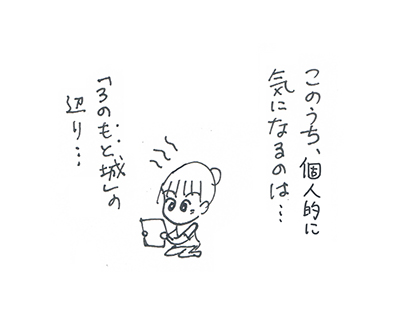 このうち、個人的に
気になるのは…
「ろのもと城」の
辺り…